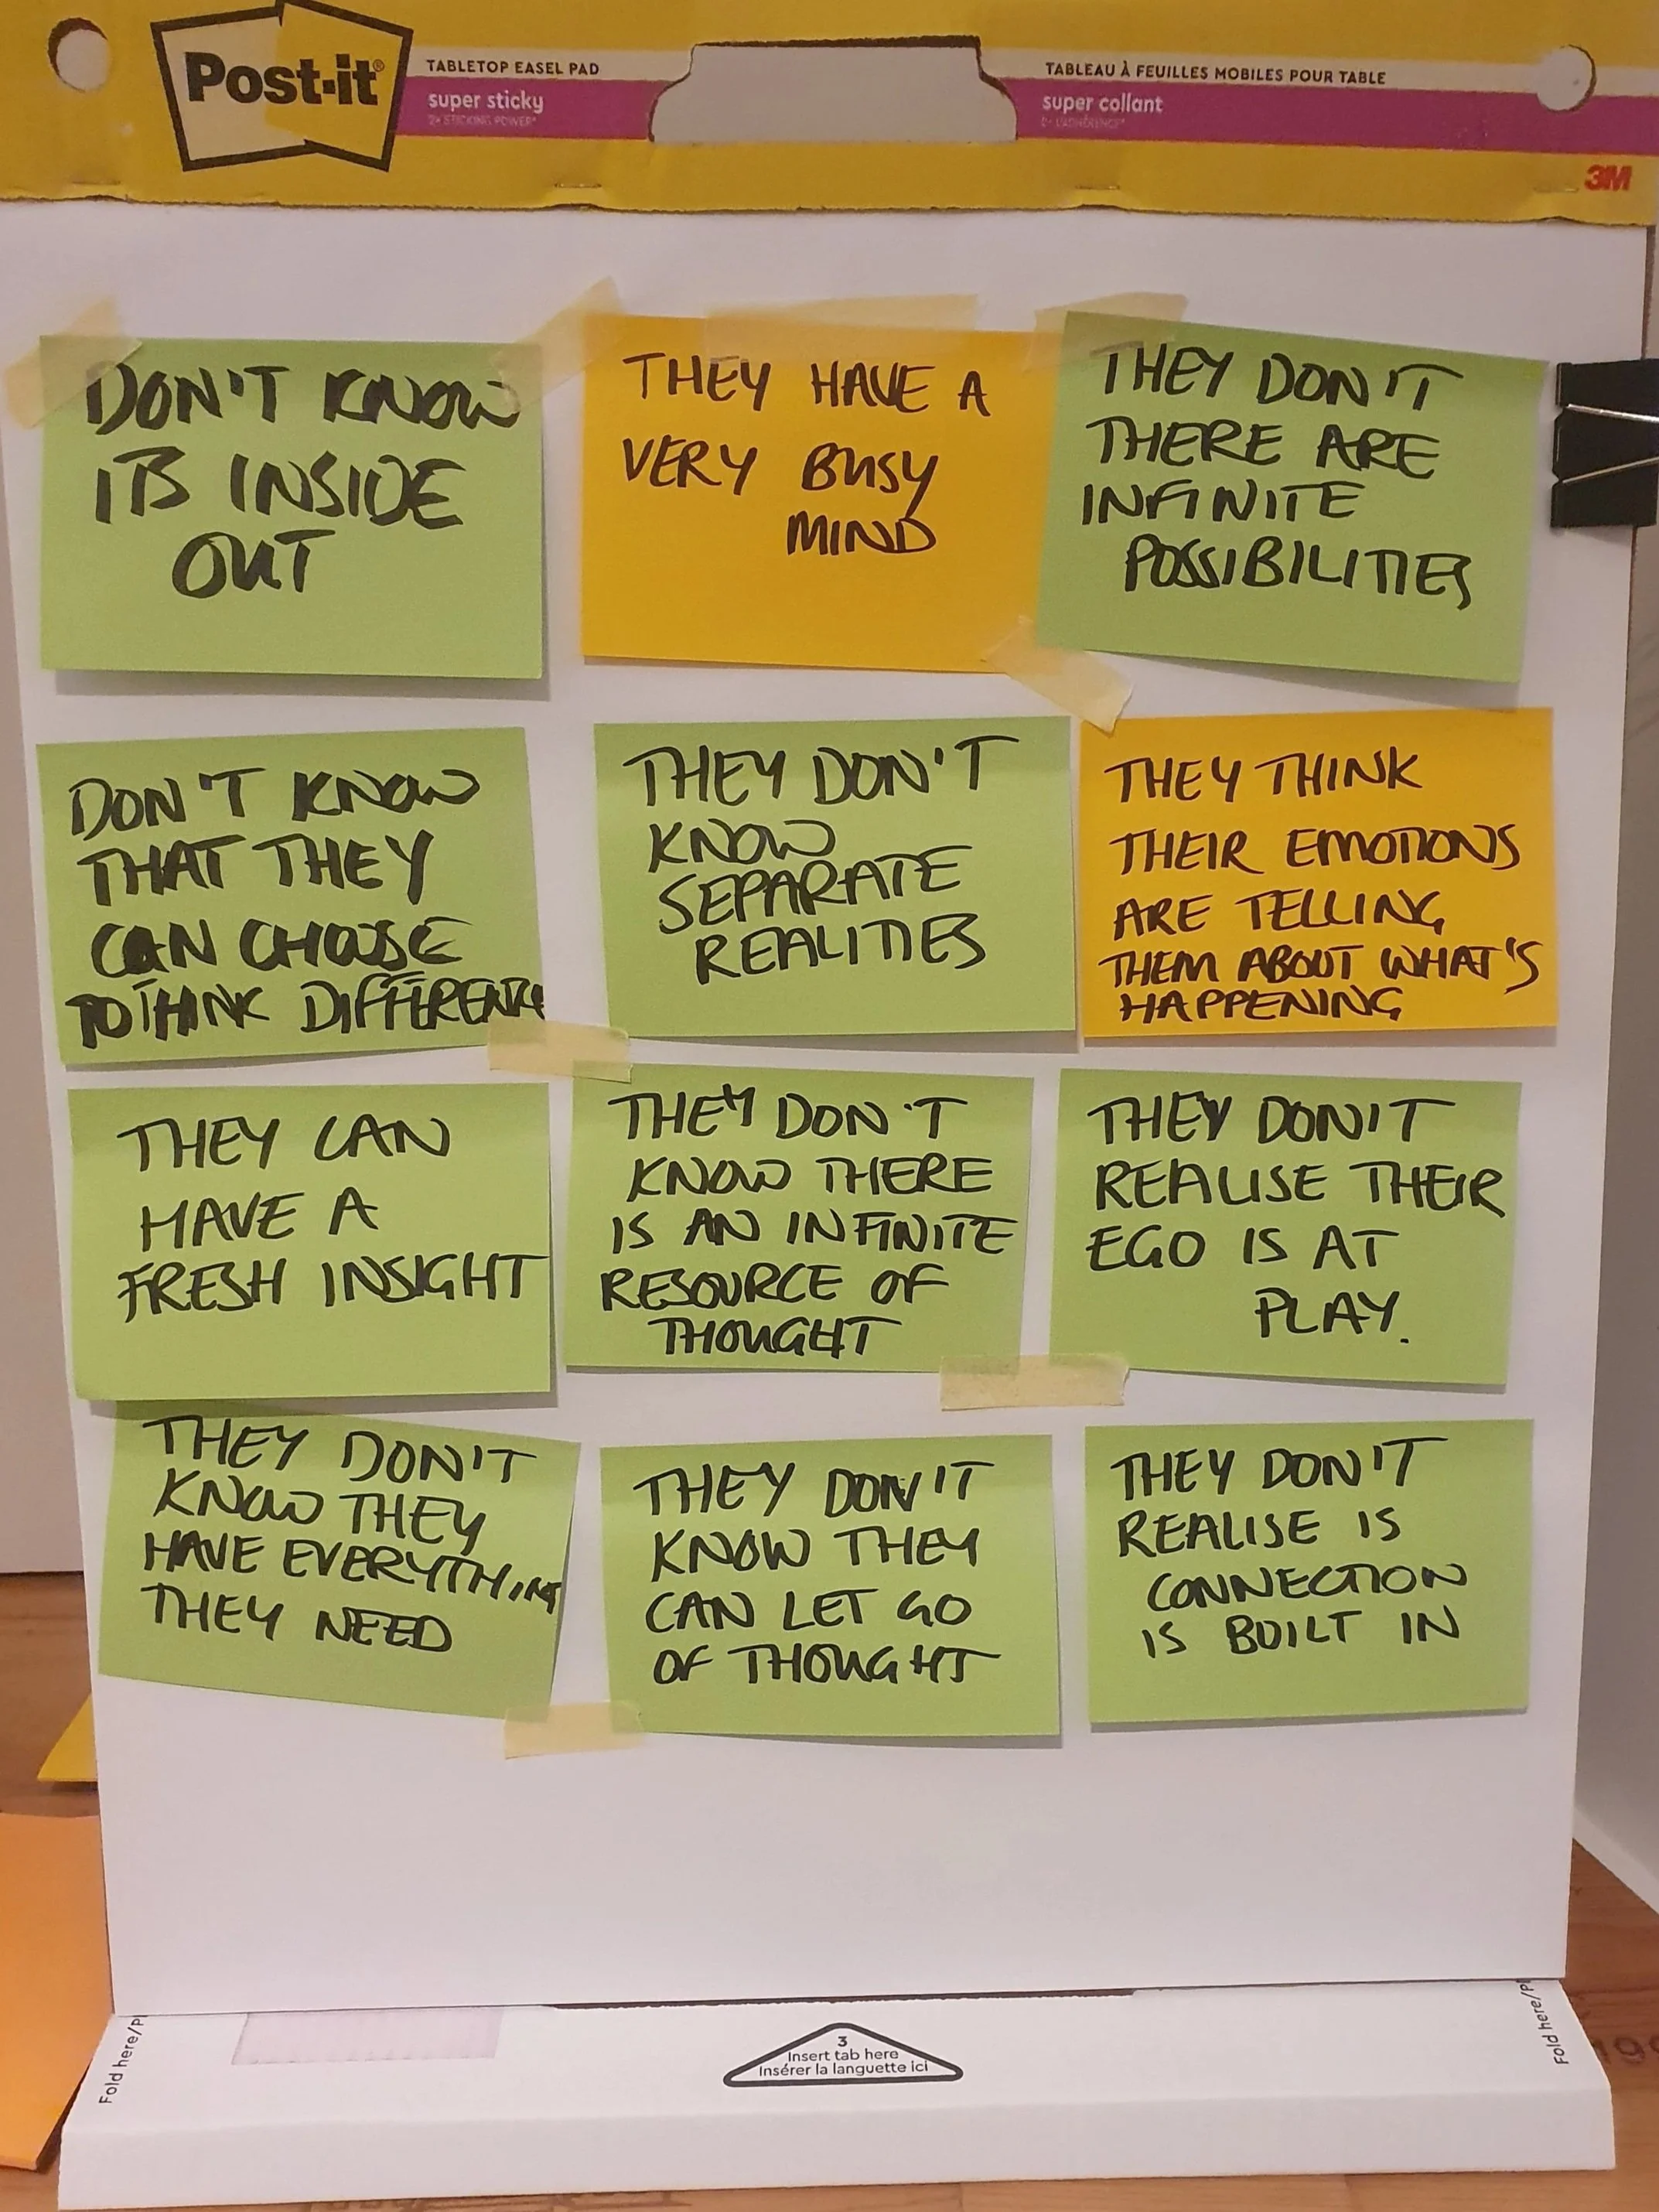 Post-it®
TABLETOP EASEL PAD
super sticky
2x STICKING POWER*
TABLEAU À FEUILLES MOBILES POUR TABLE
super collant
3M
DON'T KNOW
ITS INSIDE
OUT
THEY HAVE A
VERY BUSY
MIND
THEY DON'T
THERE ARE
INFINITE
POSSIBILITIES
DON'T KNOW
THAT THEY
CAN CHOOSE
TO THINK DIFFERENTLY
THEY DON'T
KNOW
SEPARATE
REALITIES
THEY THINK
THEIR EMOTIONS
ARE TELLING
THEM ABOUT WHAT'S
HAPPENING
THEY CAN
HAVE A
FRESH INSIGHT
THEY DON'T
KNOW THERE
IS AN INFINITE
RESOURCE OF
THOUGHT
THEY DON'T
REALISE THEIR
EGO IS AT
PLAY.
THEY DON'T
KNOW THEY
HAVE EVERYTHING
THEY NEED
THEY DON'T
KNOW THEY
CAN LET GO
OF THOUGHT
THEY DON'T
REALISE IS
CONNECTION
IS BUILT IN
Fold here/Pl
3
Insert tab here
Insérer la languette ici
Fold here/Pl